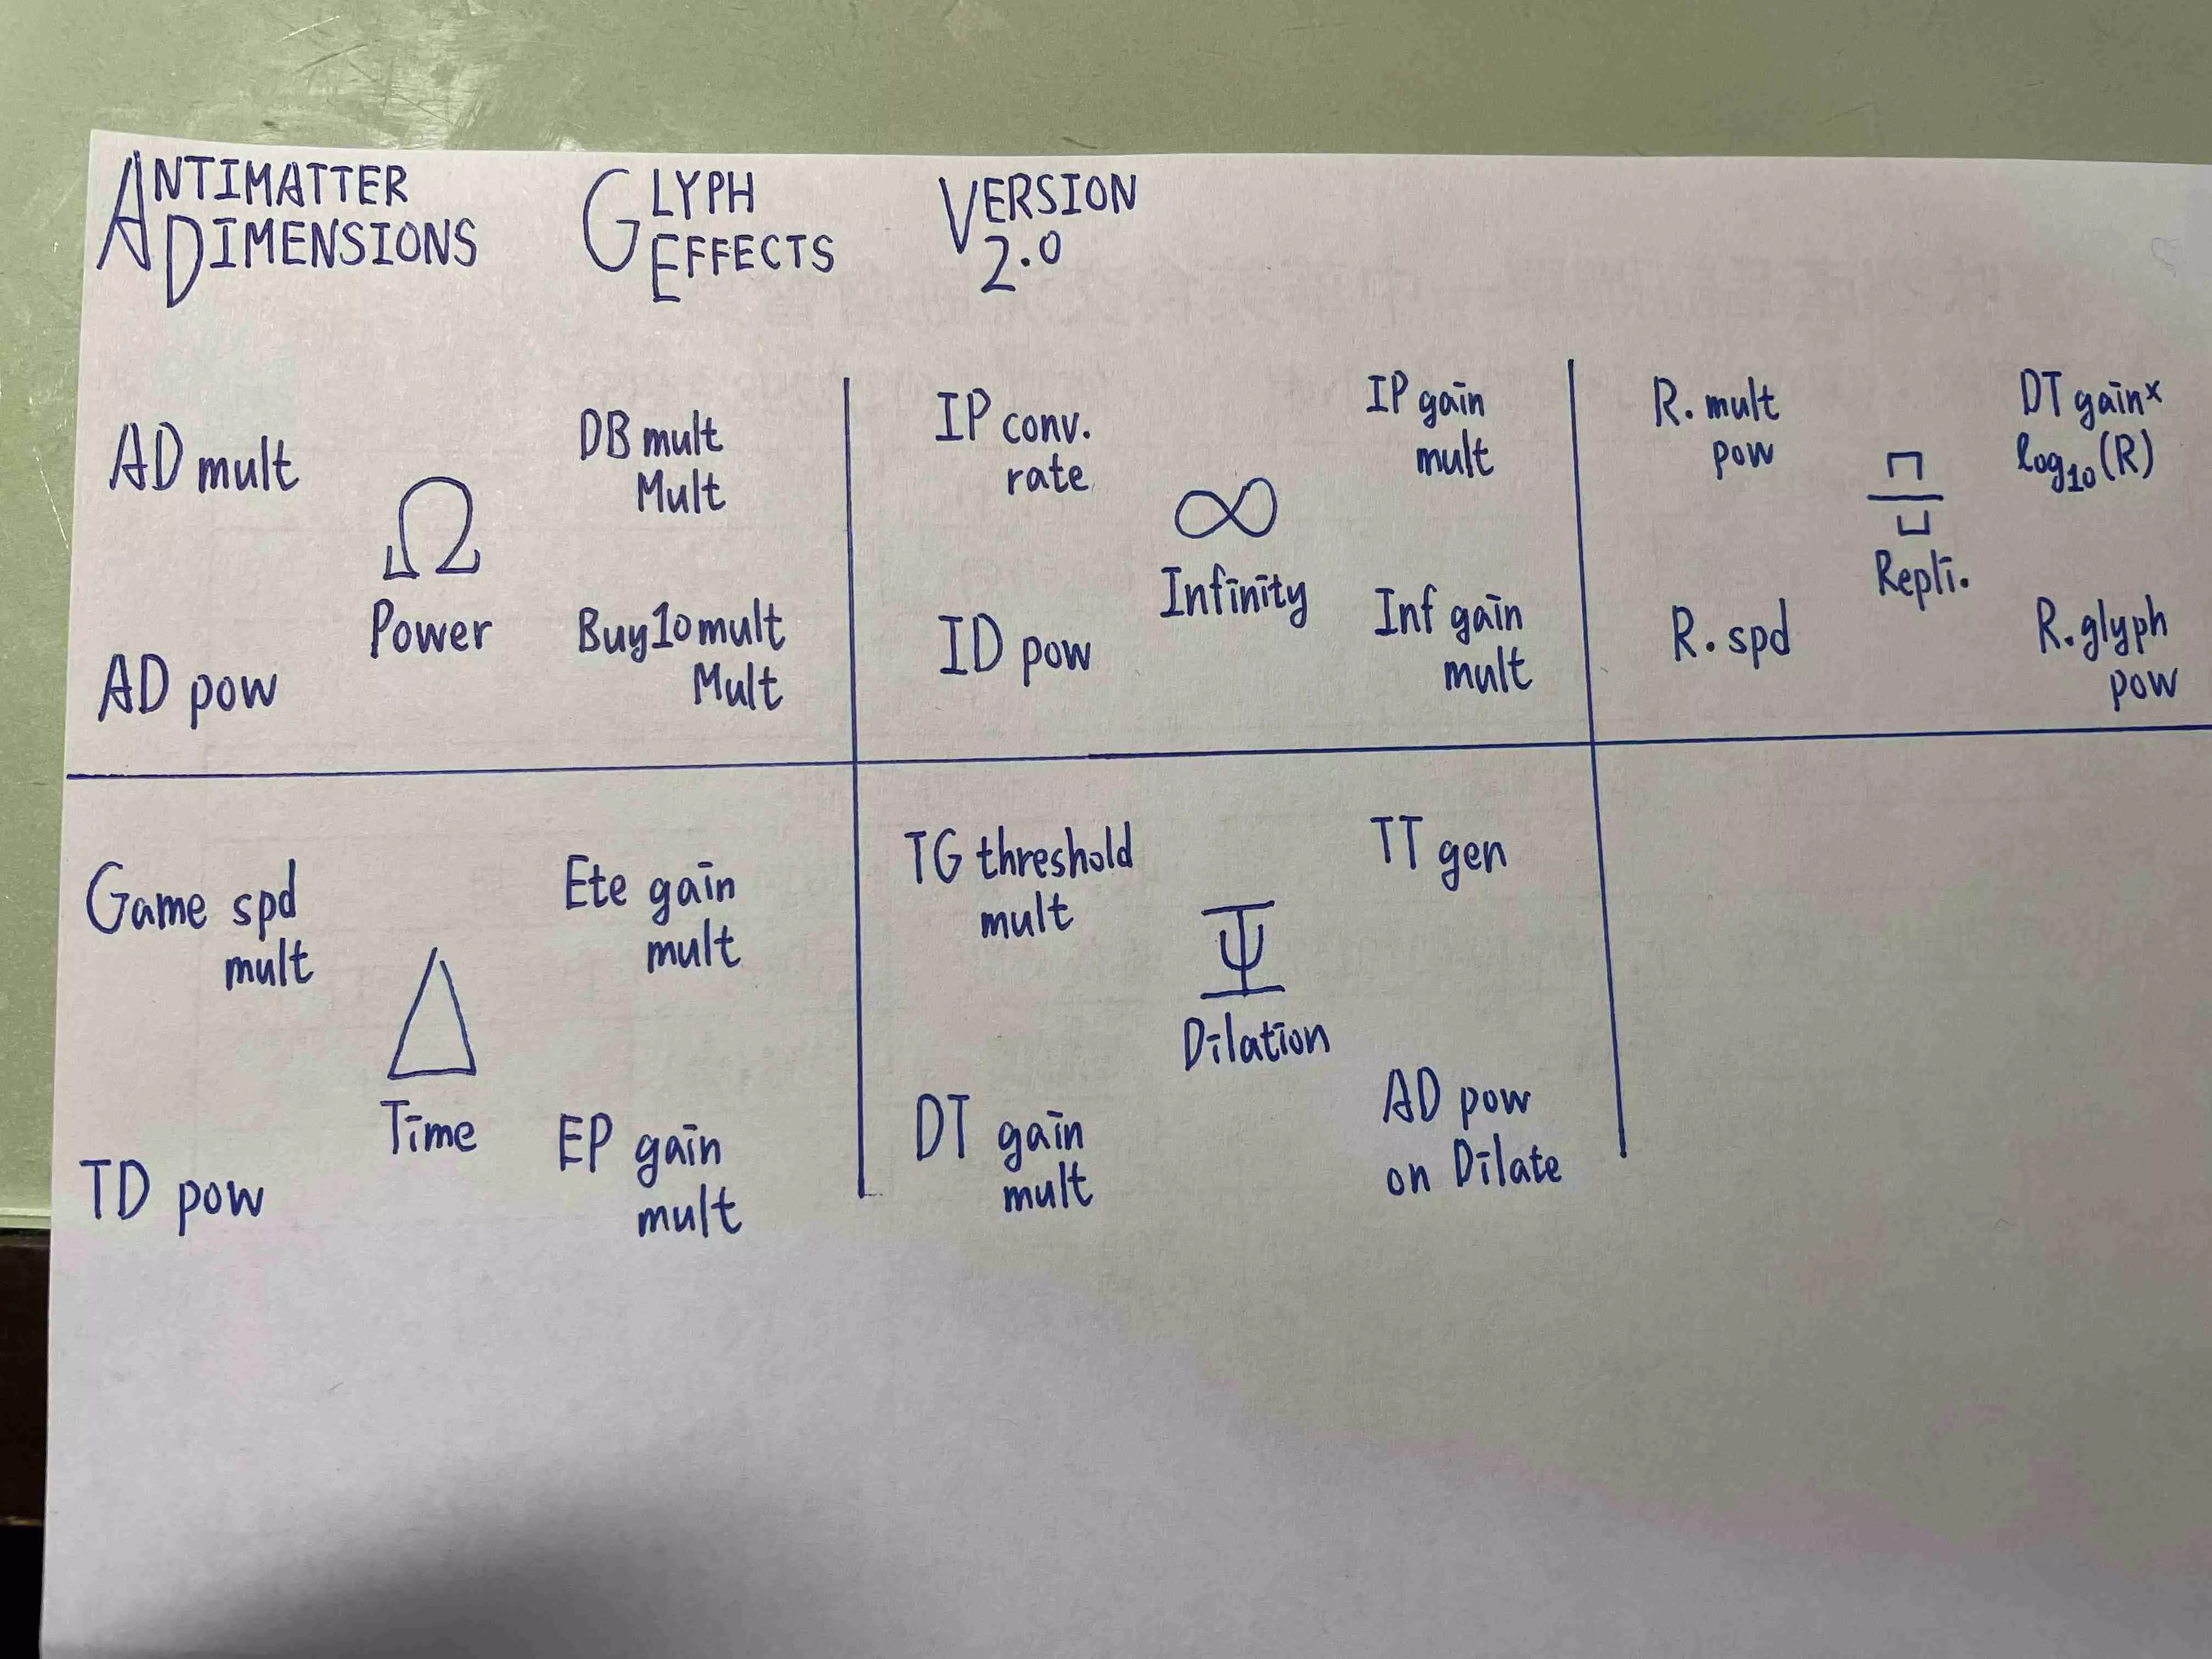 ANTIMATTER
DIMENSIONS
GLYPH
EFFECTS
VERSION
2.0
AD mult
DB mult
Mult
Ω
Power
AD pow
Buy10mult
Mult
IP conv.
rate
IP gain
mult
∞
Infinity
ID pow
Inf gain
mult
R. mult
pow
DT gain×
log₁₀(R)
Repli.
R. spd
R.glyph
pow
Game spd
mult
Ete gain
mult
Δ
Time
TD pow
EP gain
mult
TG threshold
mult
TT gen
Ψ
Dilation
DT gain
mult
AD pow
on Dilate